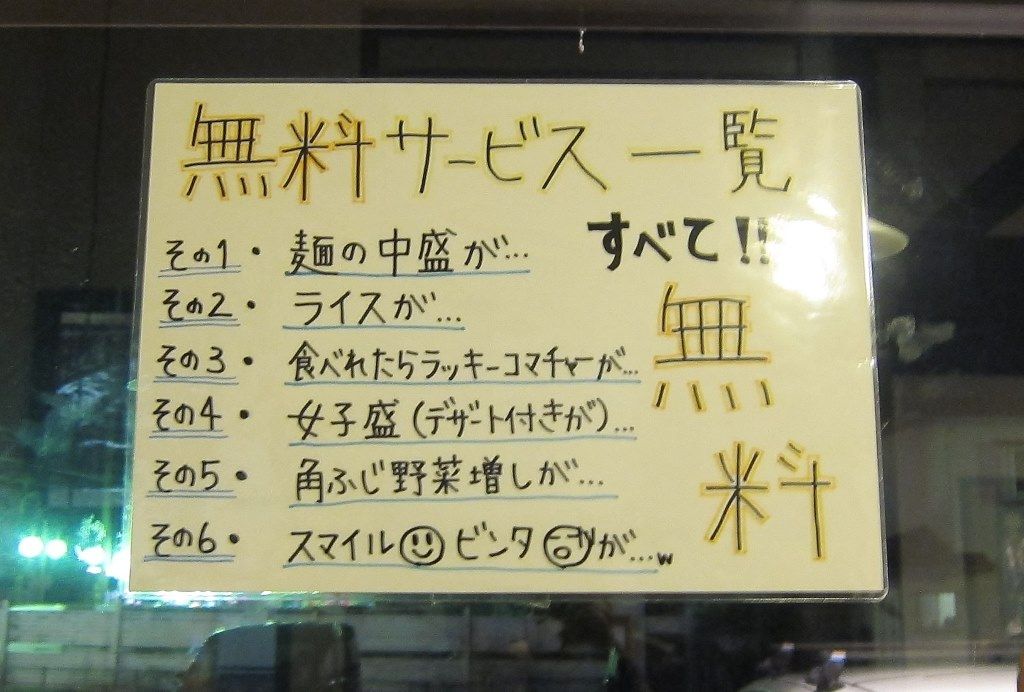 無料サービス一覧
すべて!!
その1・麺の中盛が…
その2・ライスが…
その3・食べれたらラッキーコマチャーが…
その4・女子盛(デザート付きが)…
その5・角ふじ野菜増しが…
その6・スマイル☺ビンタ が…w
無料